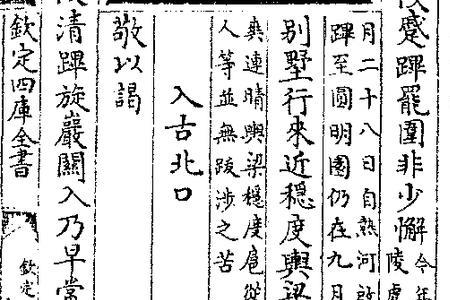 蹙蹕罷圍非少懈
今年
陵虔
月二十八日自熱河啟
蹕至圓明園仍在九月
别墅行來近穩度輿梁
爽連晴輿梁穩度扈從
人等並無跋涉之苦
入古北口
敬以謁
清蹕旋嚴關入乃早常
欽定四庫全書
欽定